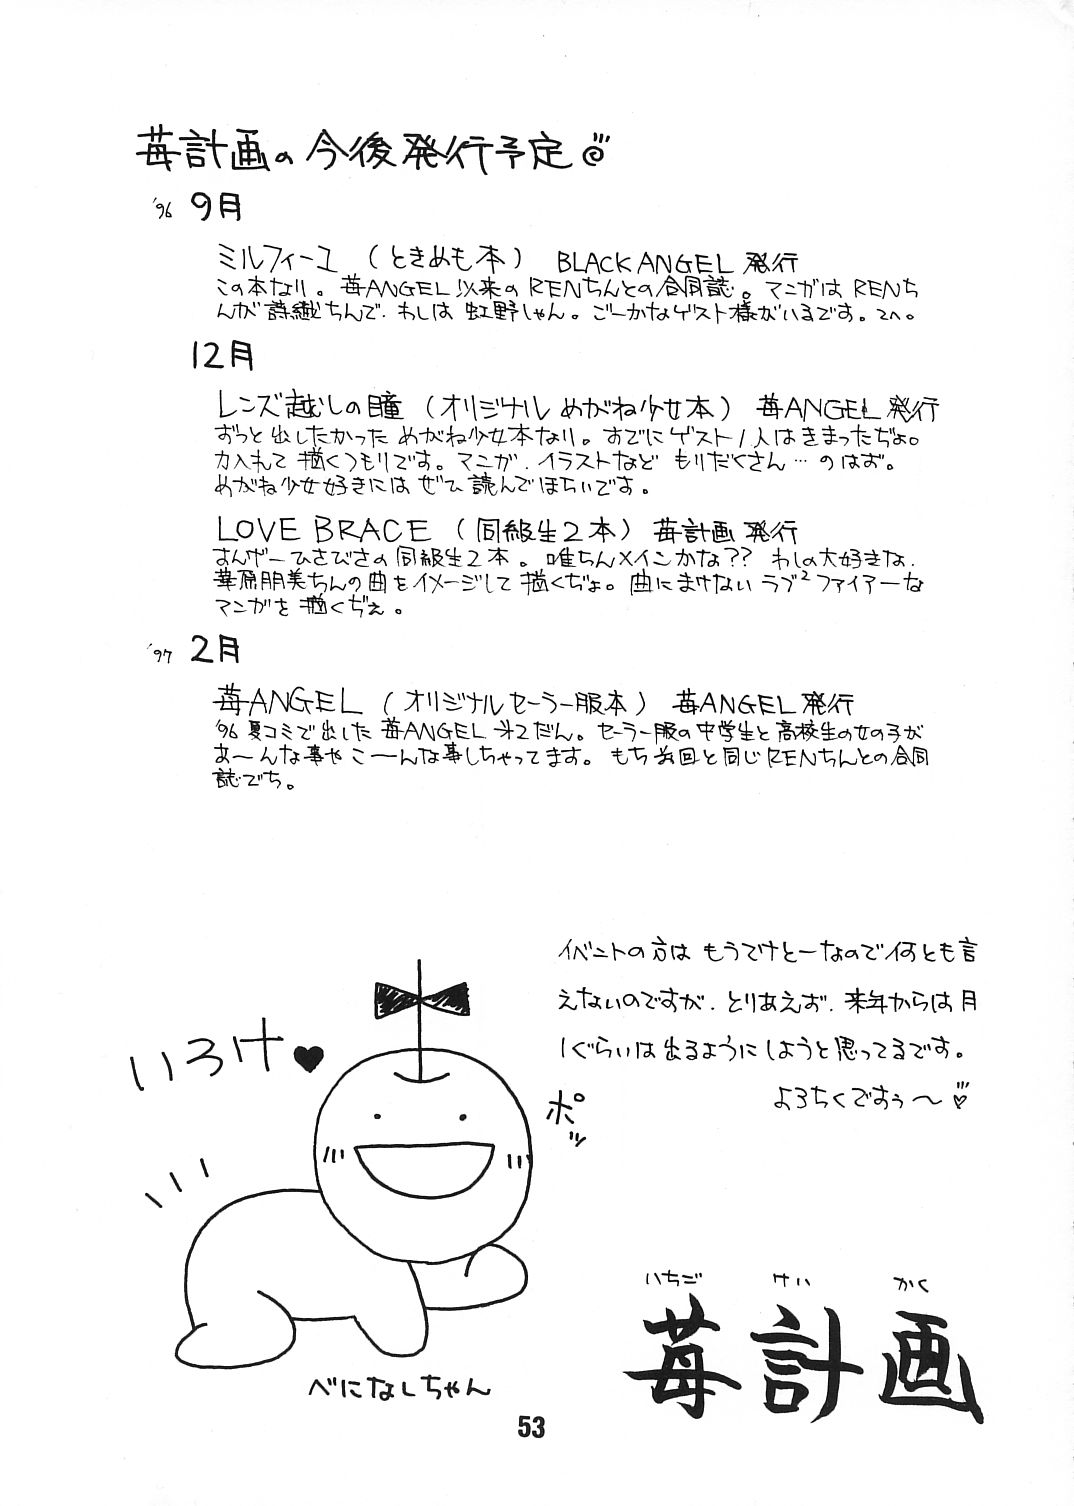 苺計画の今後発行予定
'96 9月
ミルフィーユ（ときめも本） BLACK ANGEL 発行
この本なり。苺ANGEL以来のRENちんとの合同誌。マンガはRENち
んが詩織ちんで、わしは虹野しゃん。ごーかなゲスト様がいるです。てへ。
12月
レンズ越しの瞳（オリジナルめがね少女本） 苺ANGEL 発行
ずっと出したかっためがね少女本なり。すでにゲスト1人はきまったぢょ。
力入れて描くつもりです。マンガ、イラストなどもりだくさん…のはず。
めがね少女好きにはぜひ読んでほちいです。
LOVE BRACE（同級生2本） 苺計画発行
すんげーひさびさの同級生2本。唯ちんメインかな?? わしの大好きな、
華原朋美ちんの曲をイメージして描くぢょ。曲にまけないラブ²ファイアーな
マンガを描くぢぇ。
'97 2月
苺ANGEL（オリジナルセーラー服本） 苺ANGEL 発行
'96夏コミで出した苺ANGEL才2だん。セーラー服の中学生と高校生の女の子が
あ〜んな事やこーんな事しちゃってます。もち前回と同じRENちんとの合同
誌でち。
イベントの方はもうてけとーなので何とも言
えないのですが、とりあえず、来年からは月
1ぐらいは出るようにしようと思ってるです。
よろちくですぅ〜
いろけ♥
ポッ
べになしちゃん
いちご けい かく
苺計画
53